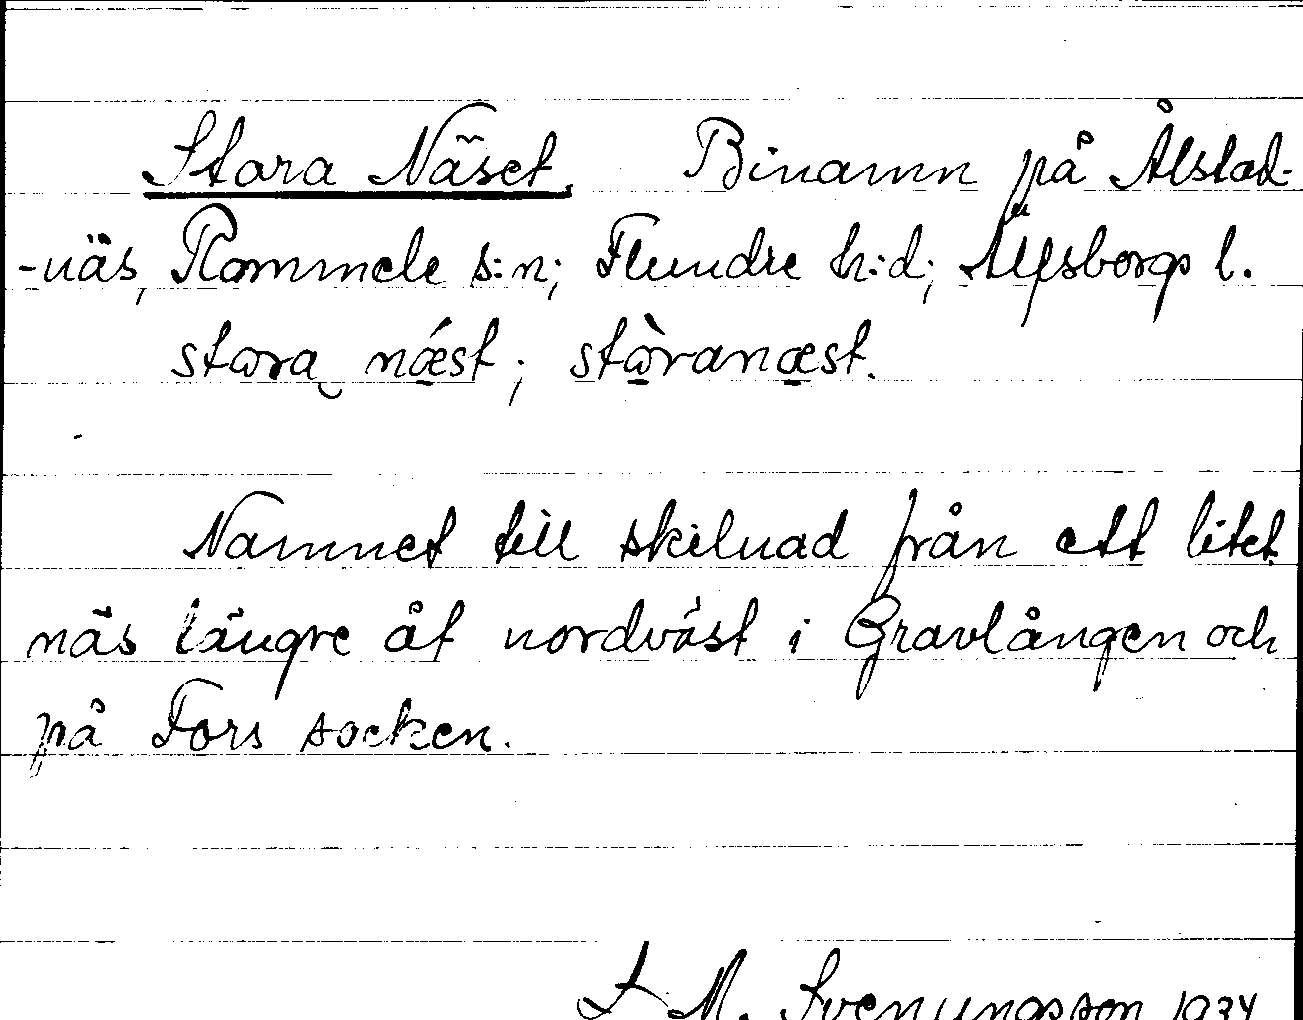 Stora Näset. Binamn på Ålstad-
-näs, Rommele s:n; Flundre h:d; Älfsborgs l.
stora næst; stòranæst.
Namnet till skilnad från ett litet
näs längre åt nordväst i Gravlången och
på Fors socken.
M. Svenungsson 1934